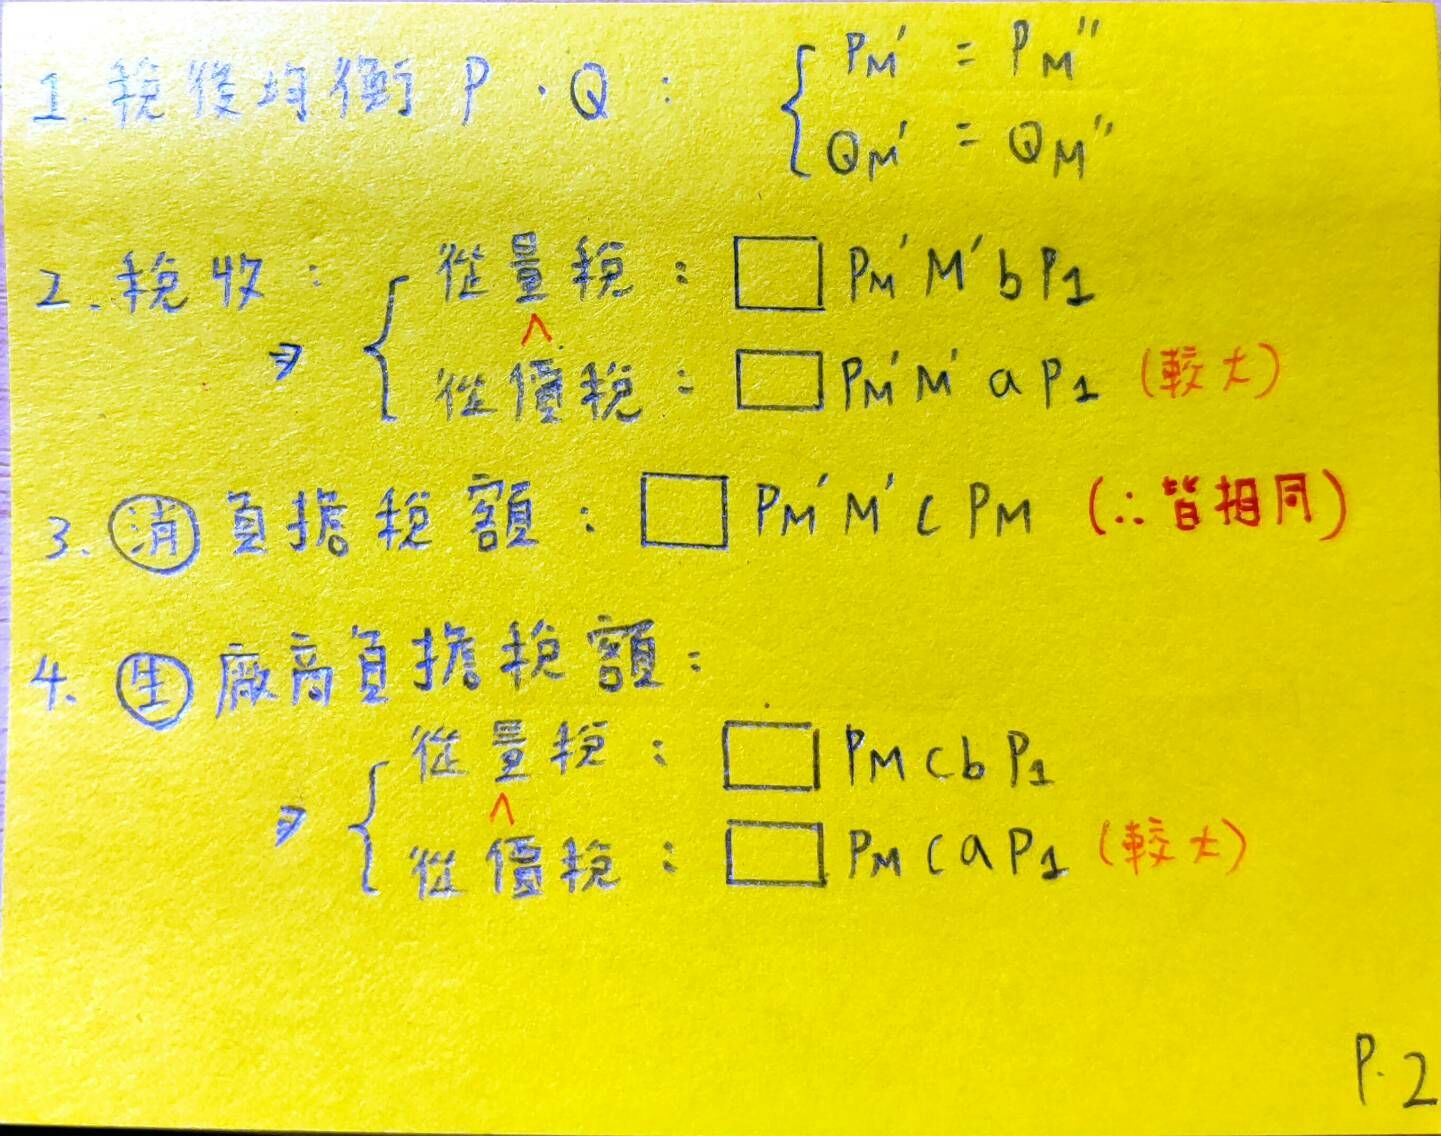 1. 稅後均衡 P、Q : { PM' = PM''
QM' = QM''
2. 稅收 : ⇒ { 從量稅 : □ PM'M'bP1
∧
從價稅 : □ PM'M'aP1 (較大)
3. 消 負擔稅額 : □ PM'M'cPM (∴皆相同)
4. 生 廠商負擔稅額 :
⇒ { 從量稅 : □ PMcbP1
∧
從價稅 : □ PMcaP1 (較大)
P.2